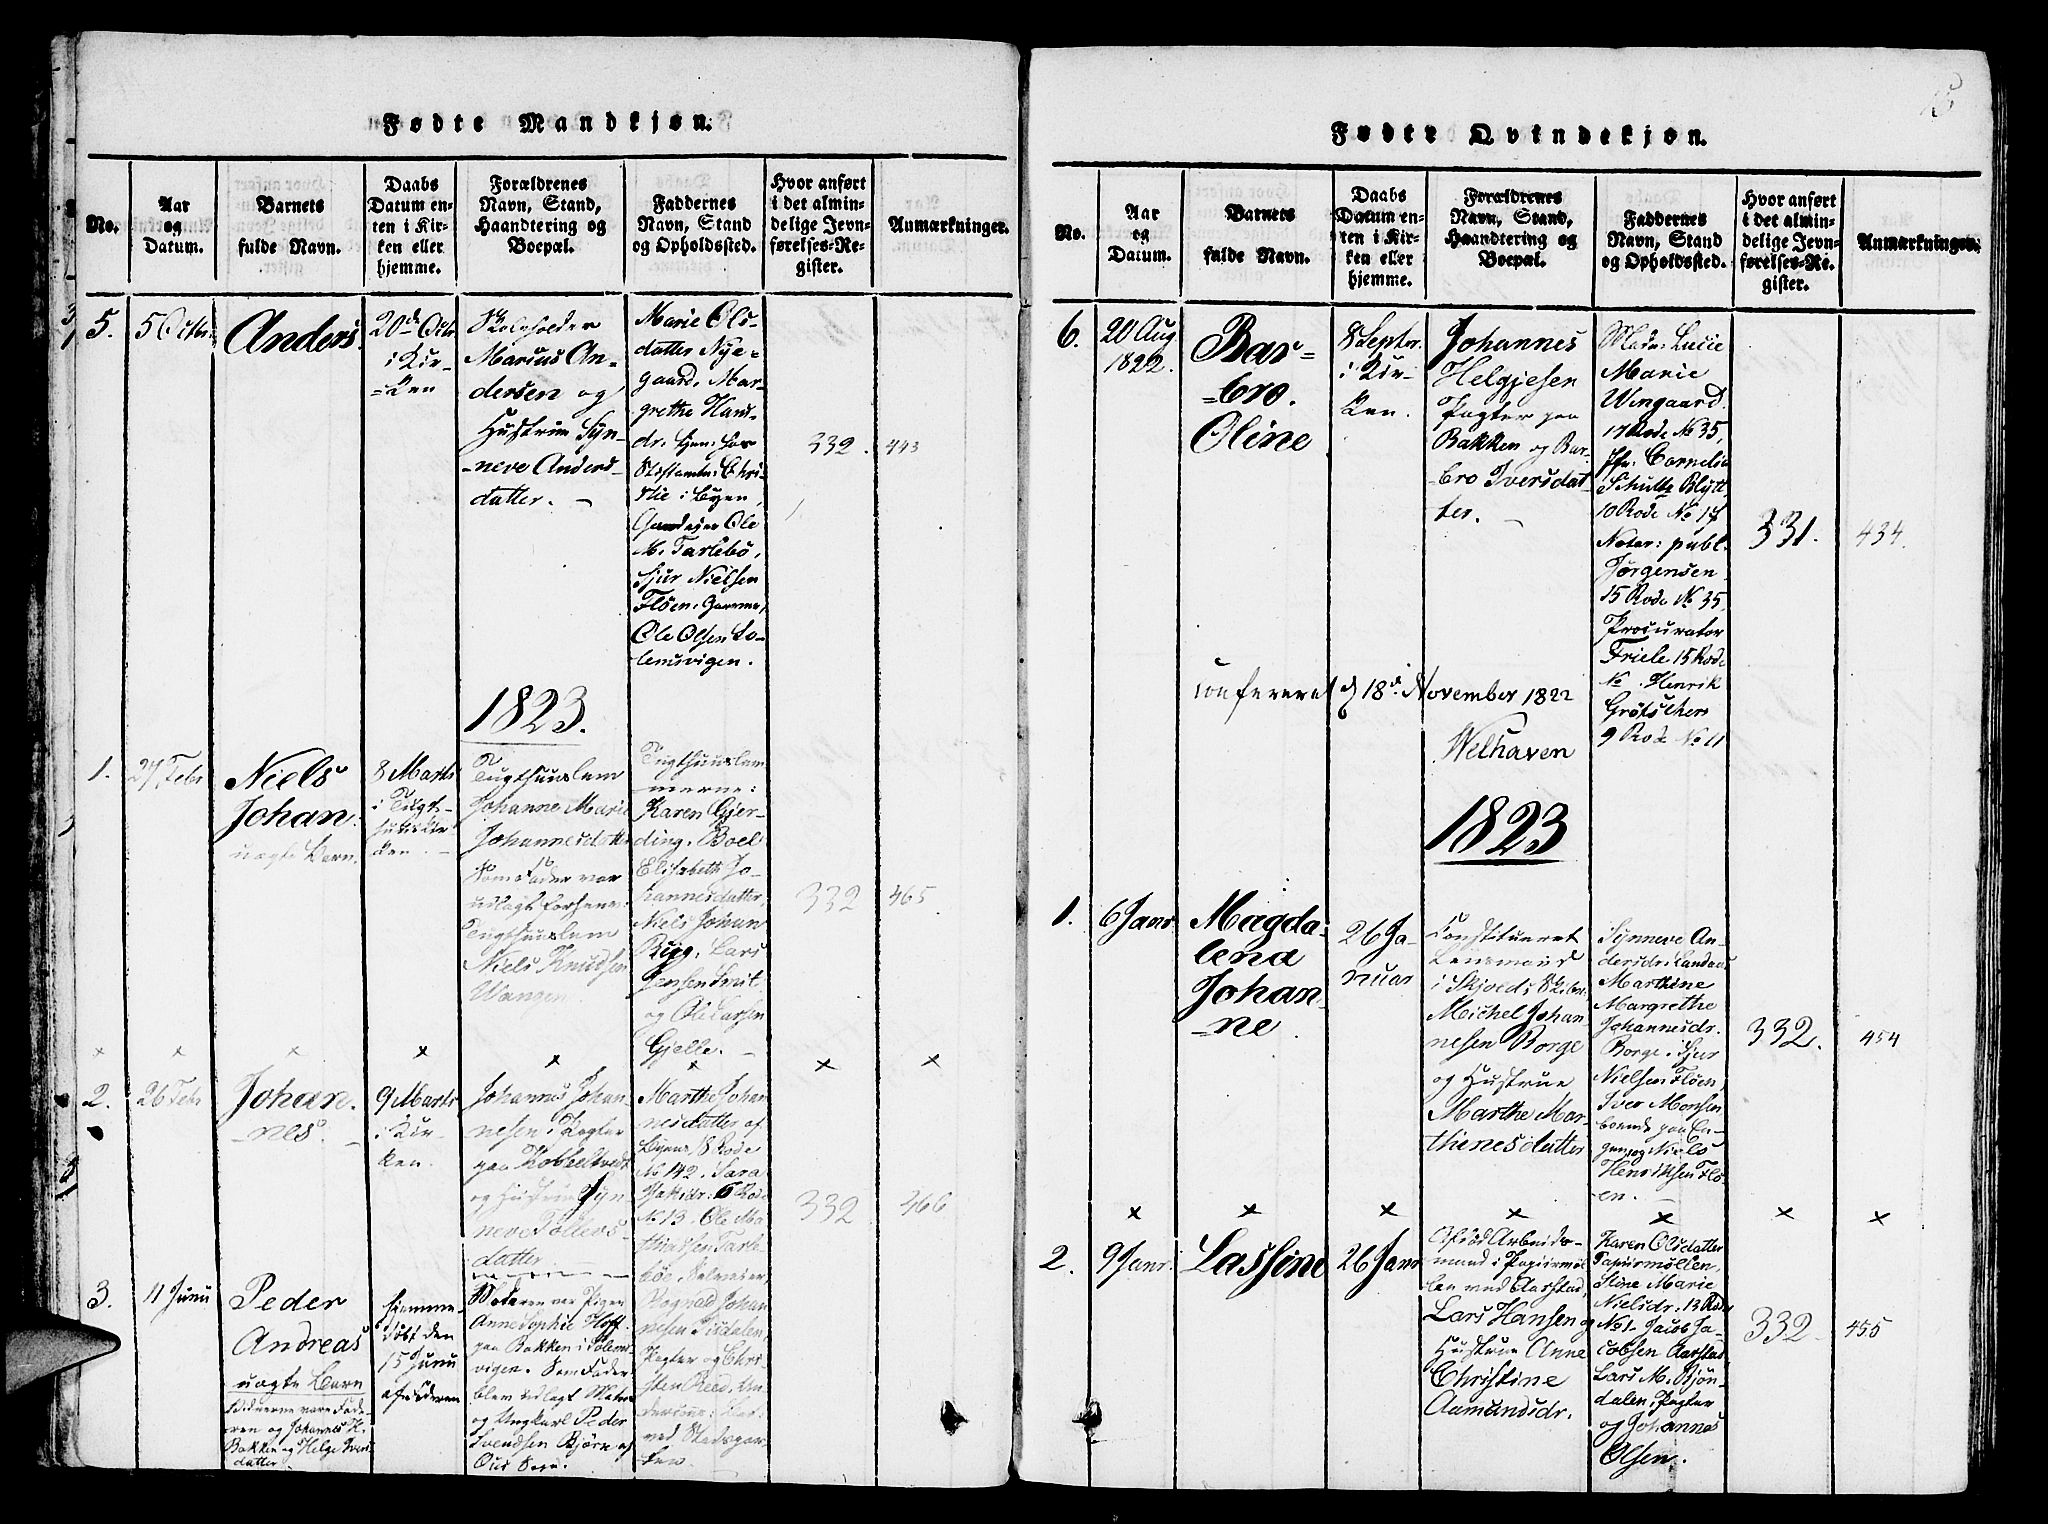 Fødte Mandkjøn.
No.
Aar
og
Datum.
Barnets
fulde Navn.
Daabs
Datum en-
ten i Kir-
ken eller
hjemme.
Forældrenes
Navn, Stand,
Haandtering og
Boepæl.
Faddernes
Navn, Stand
og Opholdssted.
Hvor anført
i det almin-
delige Jevn-
førelses-Re-
gister.
Anmærkninger.
5.
5 Octbr.
Anders.
20de Octbr
i Kir-
=ken
Skoleholder
Marius An-
dersen og
Hustrue Syn-
=neve Anders-
datter. –
Marie Ols-
datter Nye-
gaard, Mar-
grethe Hans-
dr.
Christie i Byen,
Ole
M. Tarlebø,
Sjur Nielsen
Fløen,
Ole Olsen So-
lemsvigen.
332.
443
1823.
1.
27 Febr
Niels
Johan.
uægte Barn.
8 Marts
i Tugt-
huuskir-
ken. –
Tugthuuslem
Johanne Marie
Johannesdatter
Som Fader var
udlagt forhenv:
Tugthuuslem
Niels Knudsen
Wangen
Tugthuuslem
merne:
Karen Gjer-
ding, Boel
Elisabeth Jo-
hannesdatter
Niels Johan
Bügg, Lars
Jensen Smit
og Ole Larsen
Gjelle. –
332
465.
2.
26 Febr
Johan-
=nes. –
9 Marts
i Kir-
ken.
Johannes Johan-
nesen, Pagter
paa Kobbeltvedt
og Hustrue Syn-
neve Tollevs-
datter
Marthe Johan
nesdatter af
Byen, 18 Rode
No 142. Sara
Jakdr: 6 Rode
No 13. Ole Ma
thiassen Tarle-
bøe,
Rognald Johan
nesen Tisdalen,
Pagter og Chri-
sten Reed,
332
466
3.
11 Junii
Peder
Andreas
uægte Barn
Vidnerne vare Fade-
ren og Johannes H.
Bakken og Helge Ivers
datter.
Hjemme-
døbt den
15 Junii
af Faderen
Moderen var Pigen
Anne Sophie Hoff
paa Bakken i Solems-
vigen. Som Fader
blev udlagt
og Ungkarl Peder
Svendsen Bjørn af
Ous Sogn.
Fødte Qvindekjøn.
15
No.
Aar
og
Datum.
Barnets
fulde Navn.
Daabs
Datum en-
ten i Kir-
ken eller
hjemme.
Forældrenes
Navn, Stand,
Haandtering og
Boepæl.
Faddernes
Navn, Stand
og Opholdssted.
Hvor anført
i det almin-
delige Jevn-
førelses-Re-
gister.
Anmærkninger.
6.
20 Aug
1822.
Bar-
=bro.
Oline
8 Septr.
i Kir-
ken.
Johannes
Helgjesen
Pagter paa
Bakken og Bar-
bro Iversdat-
ter. –
Mad: Lucie
Marie
Wingaard.
17 Rode No 35,
Jfr: Cornelia
Schutte Blytt,
10 Rode No 17
Notar: publ.
Jørgensen
15 Rode No 35,
Procurator
Friele 15 Rode
No . Henrik
Grøtschers
9 Rode No 11
331.
434.
Confereret d 18de November 1822
Welhaven
1823
1.
6 Janr
Magda-
lena
Johan-
=ne.
26 Ja-
nuar
Constitueret
Lensmand
i Skjolds Skibr.
Michel Johan-
nesen Borge
og Hustrue
Marthe Mar-
thinesdatter
Synneve An-
dersdr. Landaas
Marthine
Margrethe
Johannesdr.
Borge. Sjur
Nielsen Fløen,
Iver Monsen
boende paa En-
gen og Niels
Henriksen Flø-
en. –
332.
454
2.
9 Janr.
Lassine
26 Janr
Arbeids-
mand i Papiirmøl-
len ved Aarstad,
Lars Hansen og
Hustrue Anne
Christine
Aamundsdr.
Karen Olsdatter
Papiirmøllen,
Stine Marie
Nielsdr. 13 Rode
No 1. Jacob Ja-
cobsen Aarstad
Lars M. Bjøn-
dalen, Pagter
og Johannes
Olsen.
332.
455